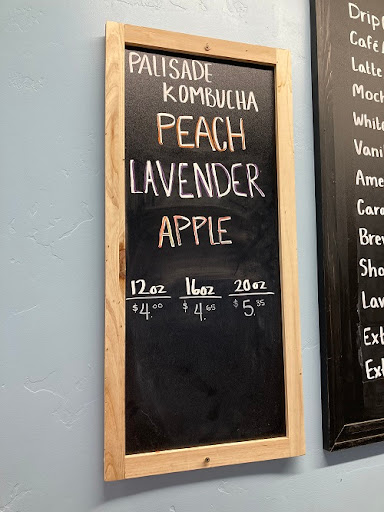 PALISADE
KOMBUCHA
PEACH
LAVENDER
APPLE
12oz 16oz 20oz
$4.00 $4.65 $5.35
Drip
Café
Latte
Moch
White
Vani
Ame
Cara
Brev
Sho
Lav
Ext
Ext